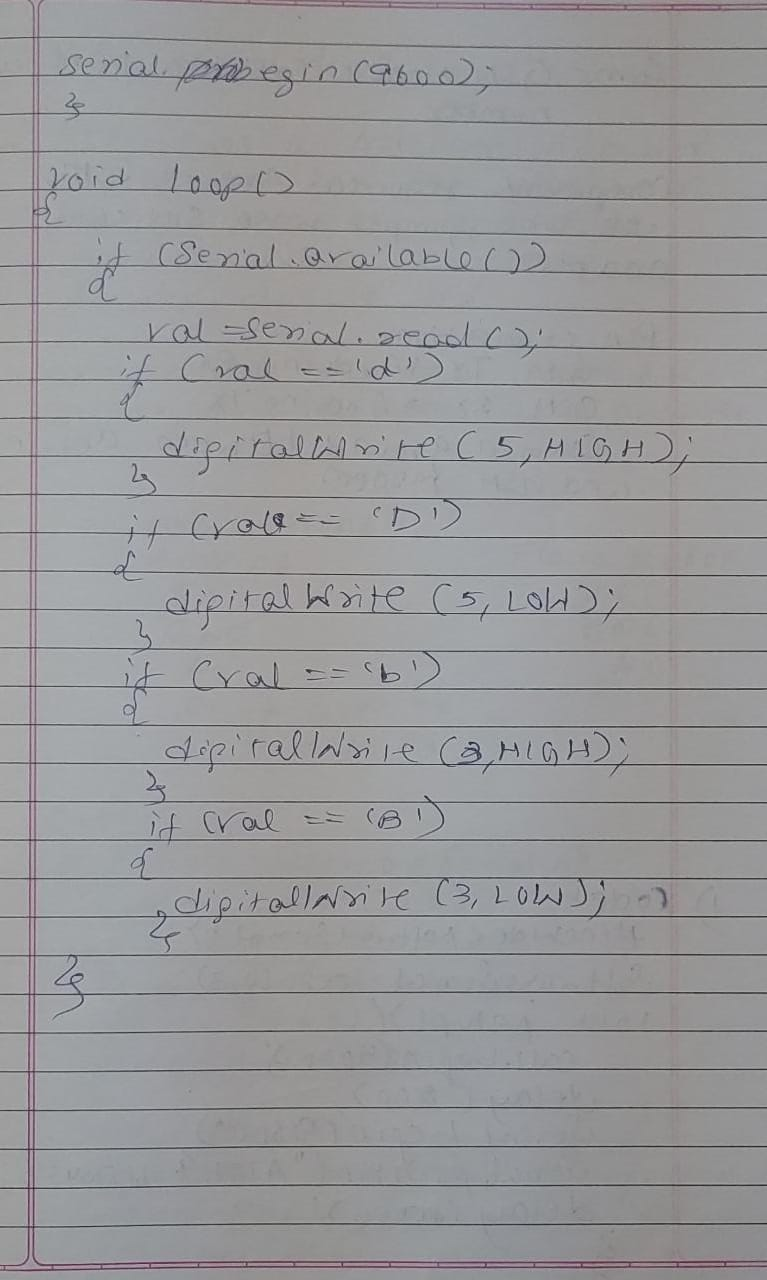 serial. begin (9600);
}
void loop()
{
if (Serial.available())
{
val = serial.read();
if (val == 'd')
{
digitalWrite (5, HIGH);
}
if (val == 'D')
{
digitalWrite (5, LOW);
}
if (val == 'b')
{
digitalWrite (3, HIGH);
}
if (val == 'B')
{
digitalWrite (3, LOW);
}
}